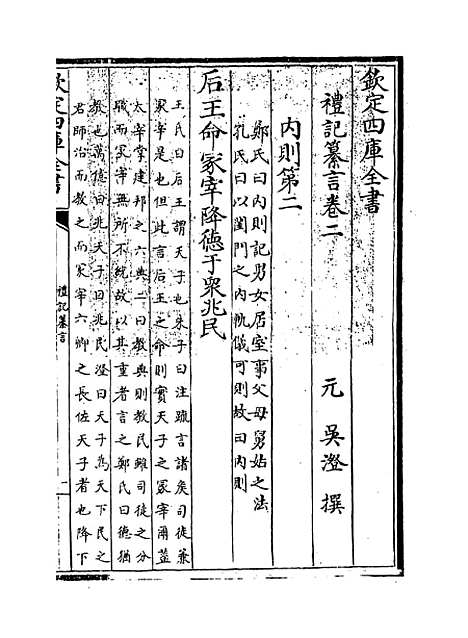 欽定四庫全書
禮記纂言卷二
元 吳澄 撰
內則第二
鄭氏曰內則記男女居室事父母舅姑之法
孔氏曰以閨門之內軌儀可則故曰內則
后王命冢宰降德于衆兆民
王氏曰后王謂天子也朱子曰注疏言諸侯司徒兼
冢宰是也但此言后王之命則實天子之冢宰爾蓋
太宰掌建邦之六典二曰教典則教民雖司徒之分
職而冢宰無所不統故以其重者言之鄭氏曰德猶
教也萬億曰兆天子曰兆民澄曰天子為天下民之
君師治而教之而冢宰六卿之長佐天子者也降下
欽定四庫全書
禮記纂言
一